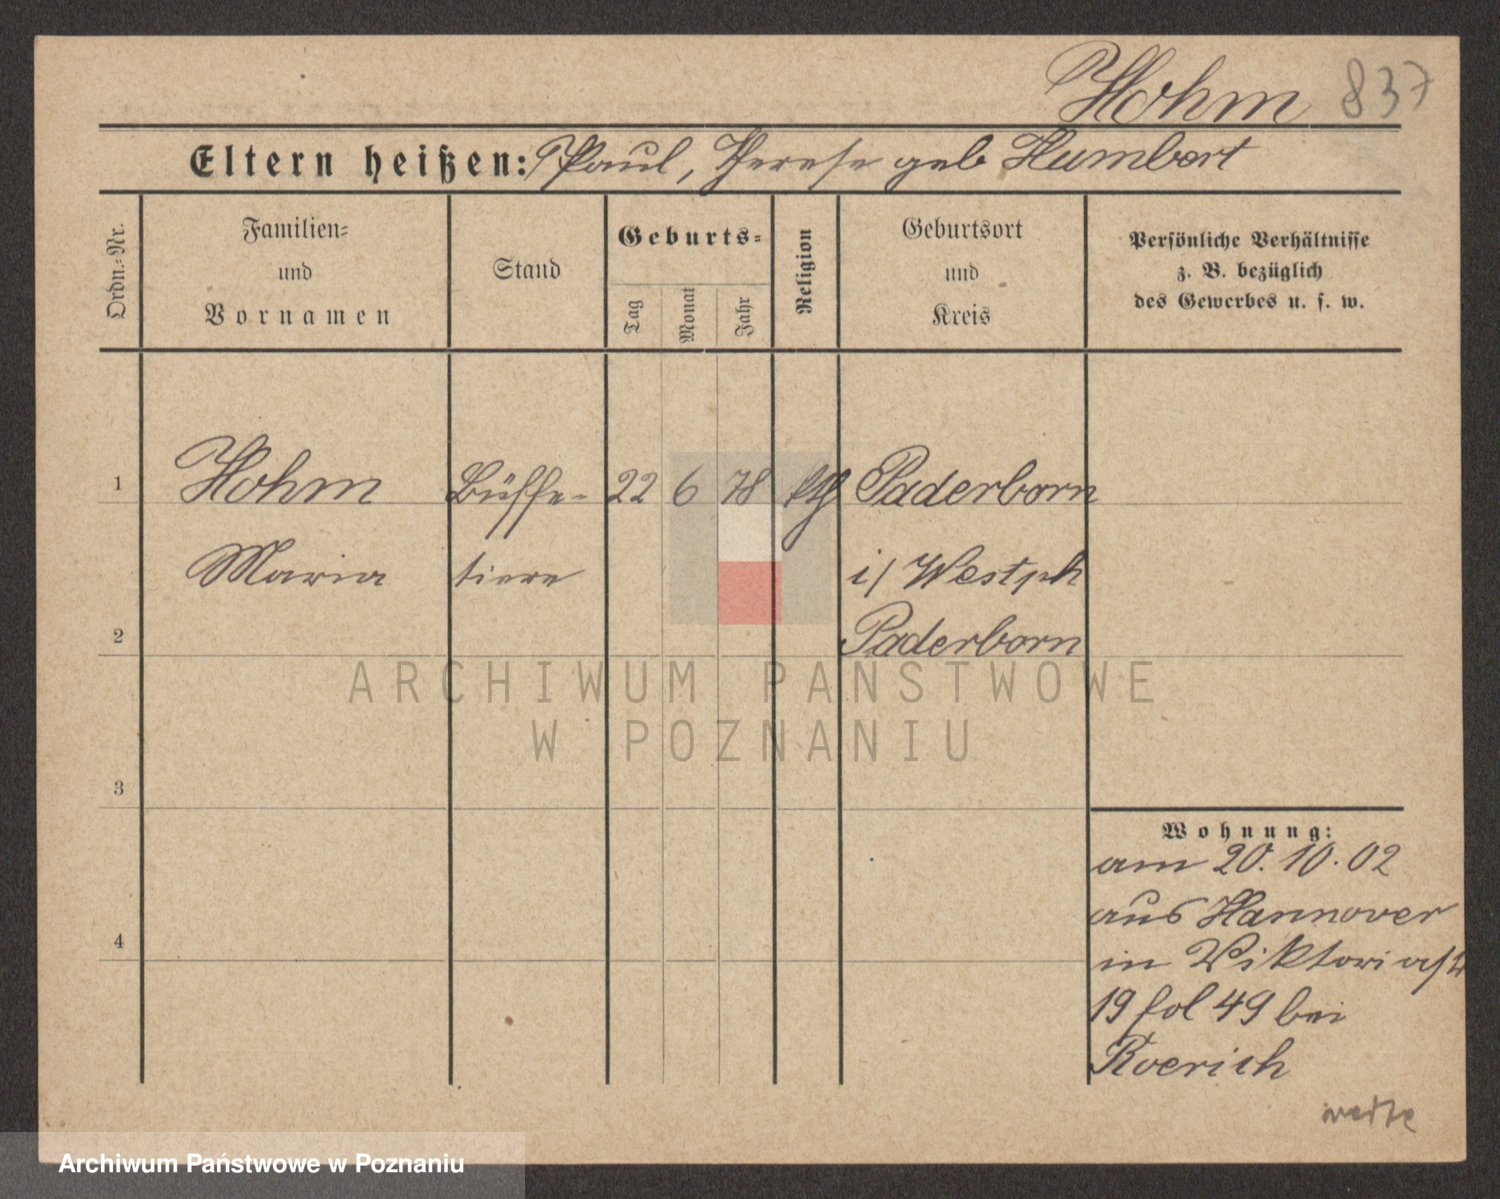 Hohm 837
Eltern heißen: Paul, Therese geb Humbert
Ordn.-Nr.
Familien-
und
Vornamen
Stand
Geburts-
Tag
Monat
Jahr
Religion
Geburtsort
und
Kreis
Persönliche Verhältnisse
z. B. bezüglich
des Gewerbes u. s. w.
1 Hohm Büffe- 22 6 78 kth Paderborn
Maria tiere i/ Westph
2 Paderborn
ARCHIWUM PAŃSTWOWE
W POZNANIU
3
Wohnung:
am 20. 10. 02
aus Hannover
in Viktoriastr
4
19 fol 49 bei
Roerich
Archiwum Państwowe w Poznaniu